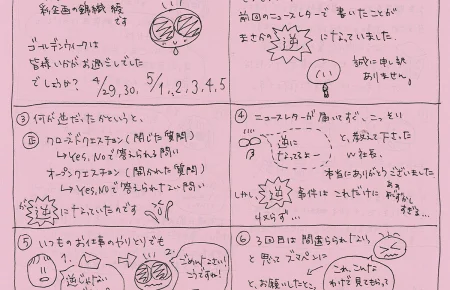 彩企画の錦織 綾
です
ゴールデンウィークは
皆様いかがお過ごしでした
でしょうか? 4/29,30, 5/1,,2,3,4,5
前回のニュースレターで書いたことが
まさかの逆になっていました.
誠に申し訳
ありません。
③ 何が逆だったかというと、
正 クローズドクエスチョン(閉じた質問)
→Yes,Noで答えられる問い
オープンクエスチョン(開かれた質問)
→Yes,NOで答えられない問い
が逆になっていたのです
④ ニュースレターが届いてすぐ、こっそり
逆に
なってるよー
と、教えて下さった
W社長、
本当にありがとうございました
しかし、逆事件はこれだけに
収まらず…
あぁ
恥ずかし
すぎる…
⑤ いつものお仕事のやりとりでも
1.
2.
逆じゃない
ごめんなさい!
こうですね!
⑥ 3回目は間違えられない
と思って
と、お願いしたところ、
これ、こんな
わけで見てもらって